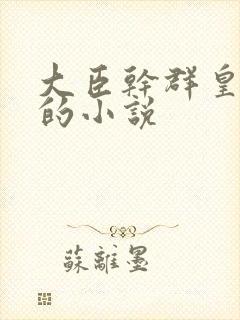 大臣幹群皇
的小說
蘇離墨